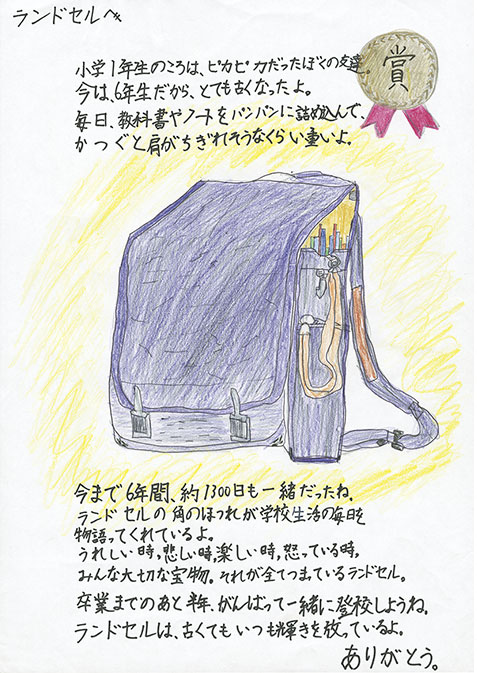 ランドセルへ
小学1年生のころは、ピカピカだったぼくの友達。
今は、6年生だから、とても古くなったよ。
毎日、教科書やノートをパンパンに詰め込んで、
かつぐと肩がちぎれそうなくらい重いよ。
賞
今まで6年間、約1300日も一緒だったね。
ランドセルの角のほつれが学校生活の毎日を
物語ってくれているよ。
うれしい時,悲しい時,楽しい時,怒っている時。
みんな大切な宝物。それが全てつまっているランドセル。
卒業までのあと半年、がんばって一緒に登校しようね。
ランドセルは、古くてもいつも輝きを放っているよ。
ありがとう。